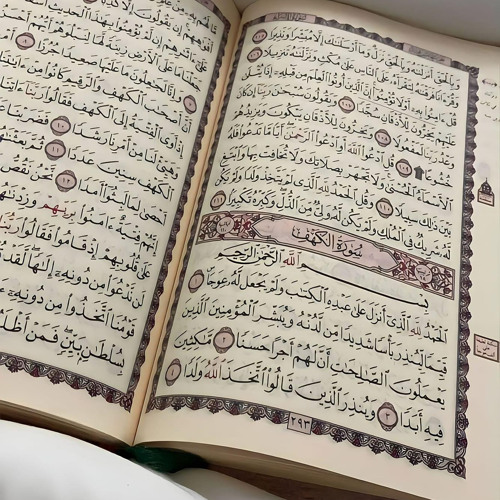 وَبِالْحَقِّ أَنزَلْنَٰهُ وَبِالْحَقِّ نَزَلَ وَمَا أَرْسَلْنَٰكَ إِلَّا مُبَشِّرًا وَنَذِيرًا ١٠٥
وَقُرْءَانًا فَرَقْنَٰهُ لِتَقْرَأَهُۥ عَلَى النَّاسِ عَلَىٰ مُكْثٍ وَنَزَّلْنَٰهُ تَنزِيلًا ١٠٦
قُلْ ءَامِنُوا بِهِۦٓ أَوْ لَا تُؤْمِنُوٓا إِنَّ الَّذِينَ أُوتُوا الْعِلْمَ مِن قَبْلِهِۦٓ إِذَا يُتْلَىٰ
عَلَيْهِمْ يَخِرُّونَ لِلْأَذْقَانِ سُجَّدًا ١٠٧ وَيَقُولُونَ سُبْحَٰنَ رَبِّنَآ إِن كَانَ
وَعْدُ رَبِّنَا لَمَفْعُولًا ١٠٨ وَيَخِرُّونَ لِلْأَذْقَانِ يَبْكُونَ وَيَزِيدُهُمْ
خُشُوعًا ١٠٩ قُلِ ادْعُوا اللَّهَ أَوِ ادْعُوا الرَّحْمَٰنَ أَيًّا مَّا تَدْعُوا فَلَهُ
الْأَسْمَآءُ الْحُسْنَىٰ وَلَا تَجْهَرْ بِصَلَاتِكَ وَلَا تُخَافِتْ بِهَا وَابْتَغِ
بَيْنَ ذَٰلِكَ سَبِيلًا ١١٠ وَقُلِ الْحَمْدُ لِلَّهِ الَّذِي لَمْ يَتَّخِذْ وَلَدًا وَلَمْ يَكُن
لَّهُۥ شَرِيكٌ فِي الْمُلْكِ وَلَمْ يَكُن لَّهُۥ وَلِيٌّ مِّنَ الذُّلِّ وَكَبِّرْهُ تَكْبِيرًا ١١١
سُورَةُ الْكَهْفِ
بِسْمِ اللَّهِ الرَّحْمَٰنِ الرَّحِيمِ
الْحَمْدُ لِلَّهِ الَّذِيٓ أَنزَلَ عَلَىٰ عَبْدِهِ الْكِتَٰبَ وَلَمْ يَجْعَل لَّهُۥ عِوَجَا ١
قَيِّمًا لِّيُنذِرَ بَأْسًا شَدِيدًا مِّن لَّدُنْهُ وَيُبَشِّرَ الْمُؤْمِنِينَ الَّذِينَ
يَعْمَلُونَ الصَّٰلِحَٰتِ أَنَّ لَهُمْ أَجْرًا حَسَنًا ٢ مَّٰكِثِينَ
فِيهِ أَبَدًا ٣ وَيُنذِرَ الَّذِينَ قَالُوا اتَّخَذَ اللَّهُ وَلَدًا ٤
٢٩٣
أَفْوَٰهِهِمْ إِن يَقُولُونَ إِلَّا كَذِبًا
إِن لَّمْ يُؤْمِنُوا بِهَٰذَا
عَلَى الْأَرْضِ زِينَةً لَّهَا لِنَبْلُوَهُمْ
وَإِنَّا لَجَٰعِلُونَ مَا عَلَيْهَا صَعِيدًا جُرُزًا ٨
أَنَّ أَصْحَٰبَ الْكَهْفِ وَالرَّقِيمِ كَانُوا مِنْ ءَايَٰتِنَا
إِذْ أَوَى الْفِتْيَةُ إِلَى الْكَهْفِ فَقَالُوا رَبَّنَآ ءَاتِنَا
وَهَيِّئْ لَنَا مِنْ أَمْرِنَا رَشَدًا ١٠ فَضَرَبْنَا
الْكَهْفِ سِنِينَ عَدَدًا ١١ ثُمَّ بَعَثْنَٰهُمْ
أَحْصَىٰ لِمَا لَبِثُوٓا أَمَدًا ١٢ نَّحْنُ نَقُصُّ
إِنَّهُمْ فِتْيَةٌ ءَامَنُوا بِرَبِّهِمْ وَزِدْنَٰهُمْ
عَلَىٰ قُلُوبِهِمْ إِذْ قَامُوا فَقَالُوا رَبُّنَا
لَن نَّدْعُوَا مِن دُونِهِۦٓ إِلَٰهًا لَّقَدْ
قَوْمُنَا اتَّخَذُوا مِن دُونِهِۦٓ
بِسُلْطَٰنٍ بَيِّنٍ فَمَنْ أَظْلَمُ